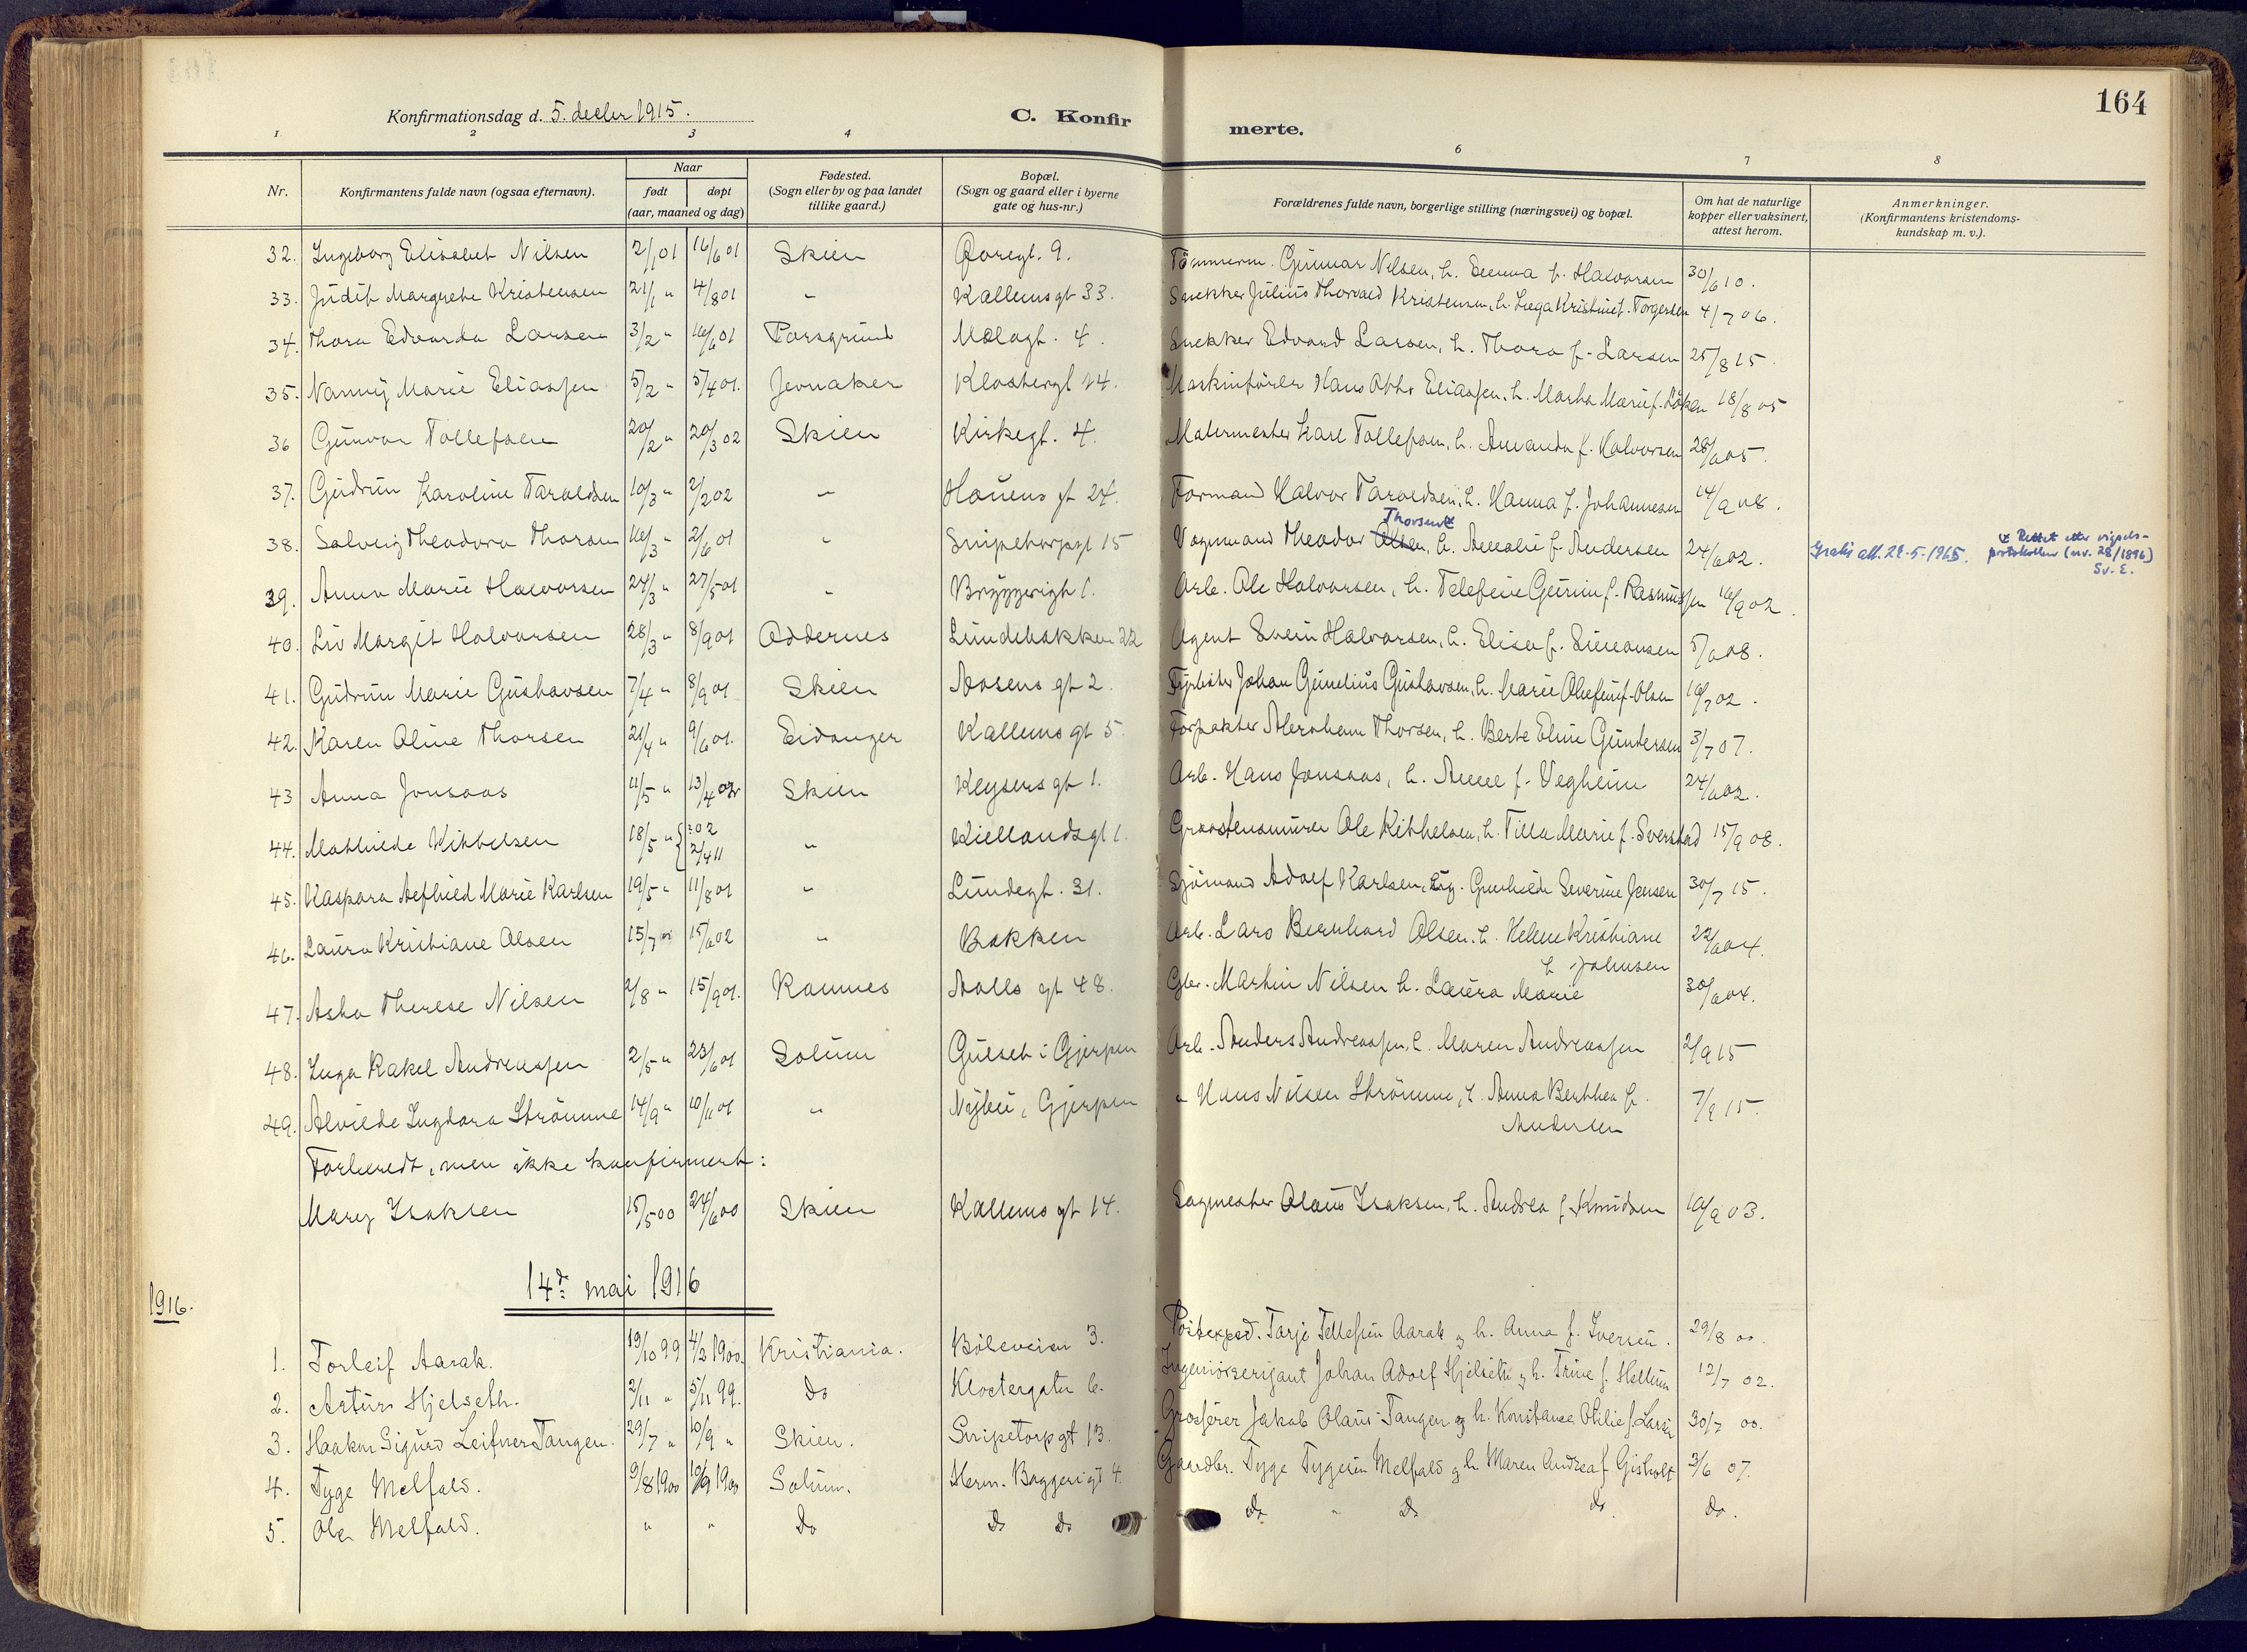 164
Konfirmationsdag d. 5. decbr 1915.
C. Konfirmerte.
1 2 3 4 6 7 8
Nr.
Konfirmantens fulde navn (ogsaa efternavn).
Naar
født
døpt
(aar, maaned og dag)
Fødested.
(Sogn eller by og paa landet
tillike gaard.)
Bopæl.
(Sogn og gaard eller i byerne
gate og hus-nr.)
Forældrenes fulde navn, borgerlige stilling (næringsvei) og bopæl.
Om hat de naturlige
kopper eller vaksinert,
attest herom.
Anmerkninger.
(Konfirmantens kristendoms-
kundskap m. v.).
32. Ingeborg Elisabet Nilsen 2/1 01 16/6 01 Skien 9. Tömmerm. Gunnar Nilsen, h. Emma f. Halvorsen 30/6 10.
33. Judit Margrete Kristensen 21/1 " 4/8 01 " Kallums gt 33. Snekker Julius Thorvald Kristensen, h. Inga Kristine f. Torgersen 4/7 06.
34. Thora Edvarda Larsen 3/2 " 16/6 01 Porsgrund Mælagt. 4. Snekker Edvard Larsen, h. Thora f. Larsen 25/8 15.
35. Nanny Marie Eliassen 5/2 " 5/4 01. Jevnaker Klostergt 14. Maskinförer Hans Otto Eliassen, h. Marta Marie f. Löken 18/8 05
36 Gunvor Tollefsen 20/2 " 20/3 02 Skien Kirkegt. 4. Malermester Karl Tollefsen, h. Amanda f. Halvorsen 28/6 05.
37. Gudrun Karoline Taraldsen 10/3 " 2/2 02 " Houens gt 24. Formand Halvor Taraldsen, h. Hanna f. Johannesen 14/9 08.
Thorsen x
38. Solveig Theodora Thorsen 16/3 " 2/6 01 " Snipetorpgt 15 Vognmand Theodor Olsen, h. Amalie f. Andersen 24/6 02. Gratis att. 28-5-1965. x Rettet etter vigsels-
protokollen (nr. 28/1896)
Sv. E.
39. Anna Marie Halvorsen 24/3 " 27/5 01 " Bryggerigt 1. Arb. Ole Halvorsen, h. Telefine Gurine f. Rasmussen 16/9 02.
40. Liv Margit Halvorsen 28/3 " 8/9 01 Oddernes Lundebakken 22 Agent Svein Halvorsen, h. Elise f. Simonsen 5/6 08.
41. Gudrun Marie Gustavsen 7/4 " 8/9 01 Skien Aasens gt 2. Fyrböter Johan Gunelius Gustavsen, h. Marie Olefine f. Olsen 16/7 02.
42. Karen Oline Thorsen 21/4 " 9/6 01. Eidanger Kallums gt 5. Forpakter Abraham Thorsen, h. Berte Eline Gundersen 3/7 07.
43 Anna Jonsaas 11/5 " 13/4 02 Skien Keysers gt 1. Arb. Hans Jonsaas, h. Anne f. Vegheim 24/6 02.
44. Mathilde Kittelsen 18/5 " { ? 02
2/4 11 " Kiellandsgt 1. Graastensmurer Ole Kittelsen, h. Tilla Marie f. Sverstad 15/9 08.
45. Kaspara Alfhild Marie Karlsen 19/5 " 11/8 01 " Lundegt. 31. Sjömand Adolf Karlsen, og Gunhilde Severine Jensen 30/7 15.
46. Laura Kristiane Olsen 15/7 " 15/6 02 " Bakken Arb. Lars Bernhard Olsen, h. Helene Kristiane 22/6 04.
f. Johnsen
47. Asta Therese Nilsen 2/8 " 15/9 01. Ramnes Aalls gt 48. Gbr. Martin Nilsen h. Laura Marie 30/6 04.
48. Inga Rakel Andreassen 2/5 " 23/6 01 Solum Gulset i Gjerpen Arb. Anders Andreassen, h. Maren Andreassen 2/9 15
49. Alvilde Ingdora Strömme 14/9 " 10/11 01 " Nybu, Gjerpen " Hans Nilsen Strömme, h. Anna Berthea f. 7/9 15.
Andersen
Forberedt, men ikke konfirmert:
Mary Isaksen 15/5 00 24/6 00 Skien Kallums gt 14. Sagmester Olaus Isaksen, h. Andrea f. Knudsen 10/9 03.
14d mai 1916
1916.
1. Torleif Aarak. 19/10 99 4/2 1900. Kristiania. Böleveien 3. Postexped. Tarje Tellefsen Aarak og h. Anna f. Iversen. 29/8 00.
2. Artur Hjelseth. 2/11 " 5/11 99. do Klostergaten 6. Ingeniörserjant Johan Adolf Hjelseth og h. Trine f. Hellum 12/7 02.
3. Haakon Sigurd Leifner Tangen. 29/7 " 10/9 " Skien. Snipetorpgt 13. Grosserer Jakob Olaus Tangen og h. Konstanse Otilie f. Larsen 30/7 00.
4. Tyge Melfald. 9/8 1900 10/9 1900 Solum. Herm. Baggersgt 4. Gaardbr. Tyge Tygesen Melfald og h. Maren Andrea f. Gisholt 3/6 07.
5. Ole Melfald. " " do do do do " do do do.